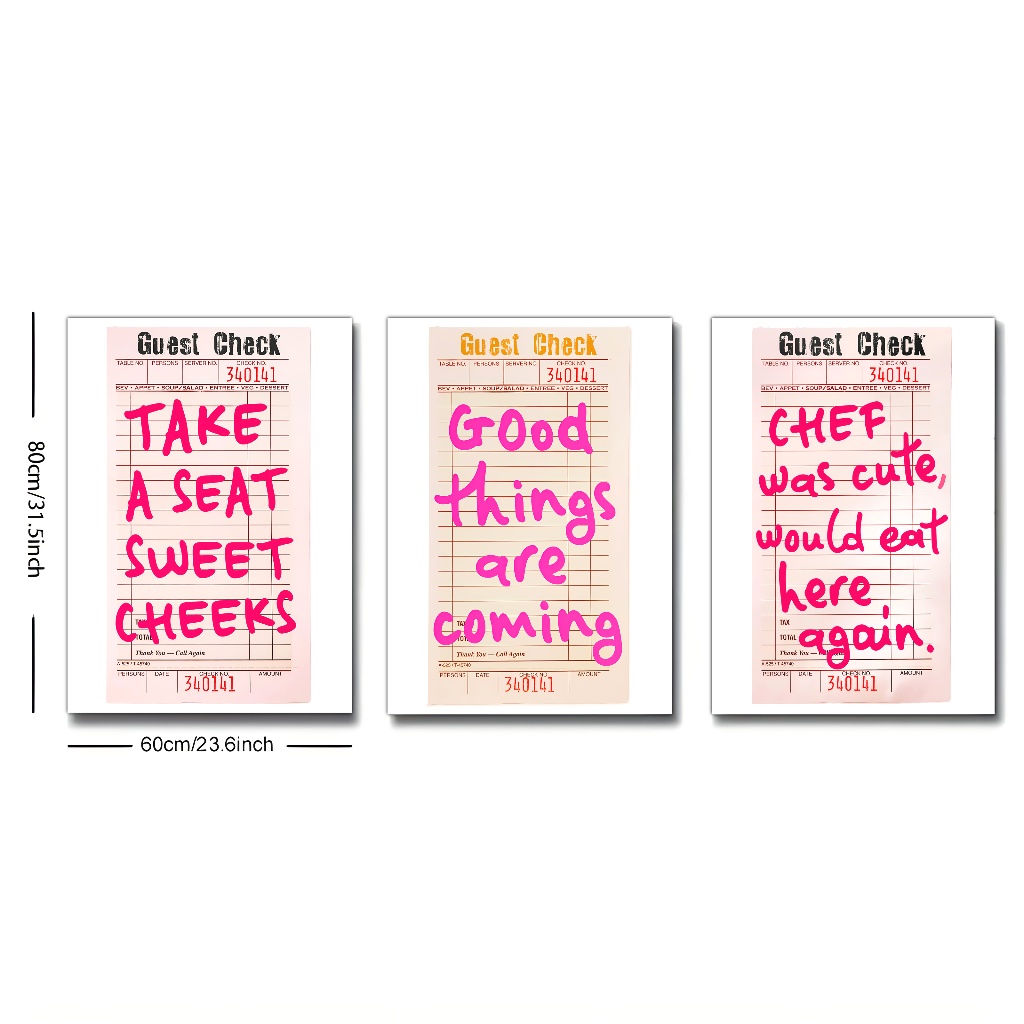 80cm/31.5inch
60cm/23.6inch
Guest Check
TABLE NO. PERSONS SERVER NO. CHECK NO.
340141
BEV • APPET • SOUP/SALAD • ENTREE • VEG • DESSERT
TAKE
A SEAT
SWEET
CHEEKS
TAX
TOTAL
Thank You — Call Again
A-525 / T-45740
PERSONS DATE CHECK NO. AMOUNT
340141
Guest Check
TABLE NO. PERSONS SERVER NO. CHECK NO.
340141
BEV • APPET • SOUP/SALAD • ENTREE • VEG • DESSERT
Good
things
are
coming
TAX
TOTAL
Thank You — Call Again
A-525 / T-45740
PERSONS DATE CHECK NO. AMOUNT
340141
Guest Check
TABLE NO. PERSONS SERVER NO. CHECK NO.
340141
BEV • APPET • SOUP/SALAD • ENTREE • VEG • DESSERT
CHEF
was cute,
would eat
here
again.
TAX
TOTAL
Thank You —
A-525 / T-45740
PERSONS DATE CHECK NO. AMOUNT
340141